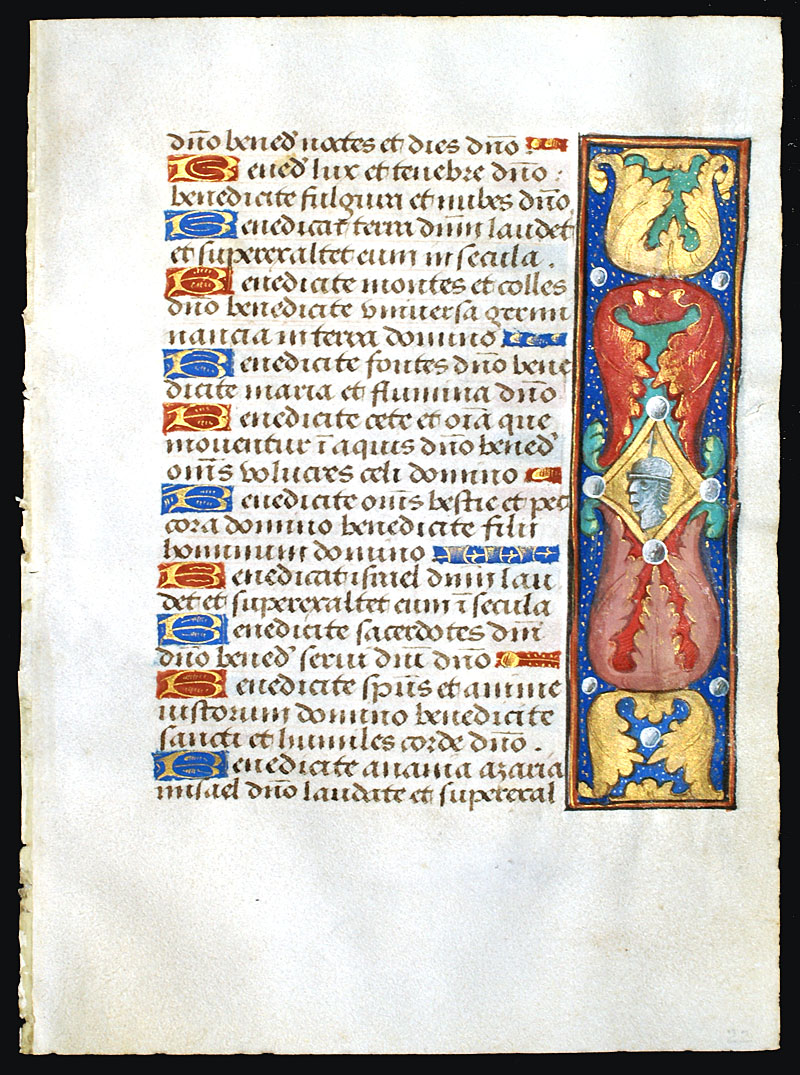 dño bened noctes et dies dño
Bened lux et tenebre dño :
benedicite fulgura et nubes dño
Benedicat terra dñm laudet
et superexaltet eum in secula .
Benedicite montes et colles
dño benedicite vniuersa germi
nancia in terra domino
Benedicite fontes dño bene
dicite maria et flumina dño
Benedicite cete et oĩa que
mouentur ĩ aquis dño bened
om̃s volucres celi domino
Benedicite om̃s bestie et pec
cora domino benedicite filii
hominum domino
Benedicat israel dñm lau
det et superexaltet eum ĩ secula
Benedicite sacerdotes dñi
dño bened serui dñi dño
Benedicite sp̃us et anime
iustorum domino benedicite
sancti et humiles corde dño .
Benedicite anania azaria
misael dño laudate et superexal